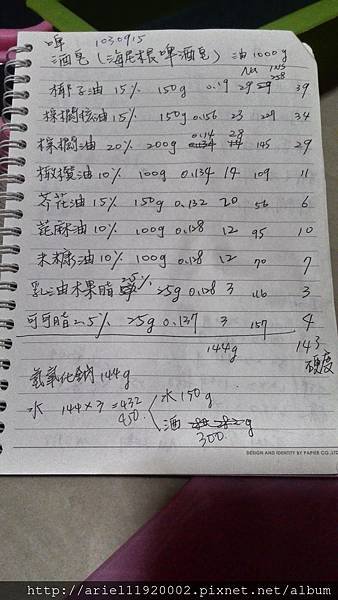 啤 1030915
酒皂(海尼根啤酒皂) 油1000g
Na INS
258
椰子油 15% 150g 0.19 29 39
棕櫚核油 15% 150g 0.156 23 229 34
0.14 28
棕櫚油 20% 200g 145 29
橄欖油 10% 100g 0.134 14 109 11
芥花油 15% 150g 0.132 20 56 6
蓖麻油 10% 100g 0.128 12 95 10
米糠油 10% 100g 0.128 12 70 7
乳油木果脂 2.5% 25g 0.128 3 116 3
可可脂 2.5% 25g 0.137 3 157 4
144g 143
硬度
氫氧化鈉 144g
水 144×3=432 水 150g
450 酒 g
300
DESIGN AND IDENTITY BY PAPIER CO.,LTD
http://ariel11920002.pixnet.net/album